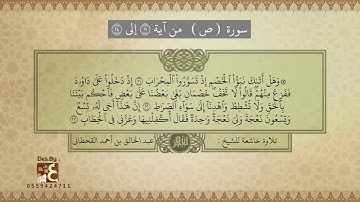 سورة ( ص ) من آية ٢١ إلى ٢٤
۞ وَهَلْ أَتَىٰكَ نَبَؤُا۟ ٱلْخَصْمِ إِذْ تَسَوَّرُوا۟ ٱلْمِحْرَابَ ٢١ إِذْ دَخَلُوا۟ عَلَىٰ دَاوُۥدَ
فَفَزِعَ مِنْهُمْ قَالُوا۟ لَا تَخَفْ خَصْمَانِ بَغَىٰ بَعْضُنَا عَلَىٰ بَعْضٍ فَٱحْكُم بَيْنَنَا
بِٱلْحَقِّ وَلَا تُشْطِطْ وَٱهْدِنَآ إِلَىٰ سَوَآءِ ٱلصِّرَٰطِ ٢٢ إِنَّ هَٰذَآ أَخِى لَهُۥ تِسْعٌ
وَتِسْعُونَ نَعْجَةً وَلِىَ نَعْجَةٌ وَٰحِدَةٌ فَقَالَ أَكْفِلْنِيهَا وَعَزَّنِى فِى ٱلْخِطَابِ ٢٣
تلاوة خاشعة للشيخ : عبد الخالق بن أحمد القحطاني
Des.By :
0559424711